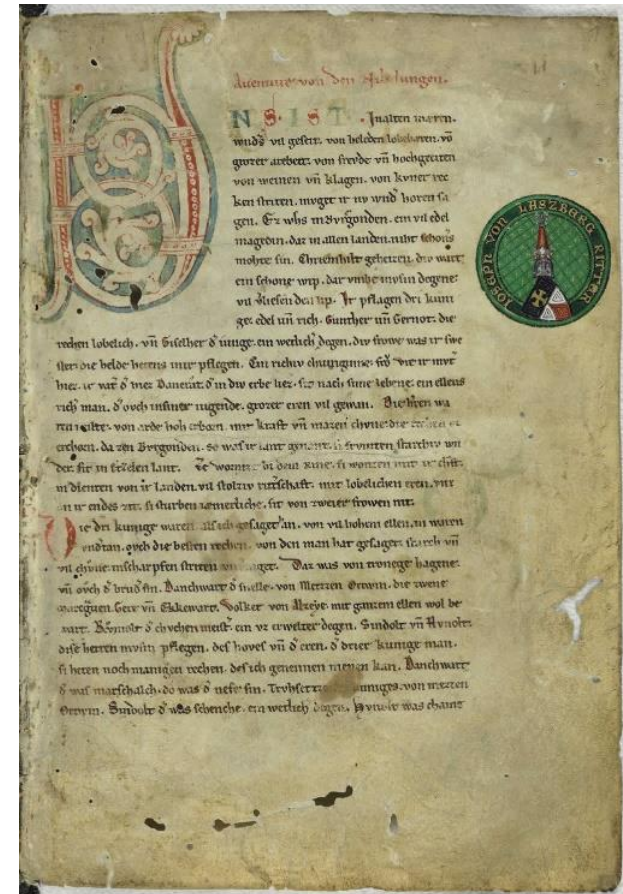 Auenture von den Nibelungen.
VNS. IST. Jn alten mæren.
wnds vil geseit. von heleden lobebæren. vō
grozer arebeit. von frevde vn̄ hochgeciten
von weinen vn̄ klagen. von kvner rec
ken striten. mvget ir nv wnd horen sa
gen. Ez whs in Bvrgonden. ein vil edel
magedin. daz in allen landen. niht schons
mohte sin. Chriemhilt geheizen. div wart
ein schone wip. dar vmbe mvsin degene
vil vliesen den lip. Ir pflagen dri kuni
ge. edel vn̄ rich. Gunther vn̄ Gernot. die
rechen lobelich. vn̄ Giselher d iunge. ein wetlich degen. div frowe was ir swe
ster. die helde hetens inir pflegen. Ein richiv chuniginne. ir mvt
hiez. ir vat d hiez Dancrat. d in div erbe liez. sit nach sime lebene. ein ellens
rich man. d ovch in siner iugende. grozer eren vil gewan. Die hren wa
ren milte. von arde hoh erborn. mit kraft vn̄ mazen chvne. die
erchorn. da zen Bvrgonden. so was ir lant genant. si frvmten starchiv wn
der. sit in Etzelen lant. Ze wormz bi dem Rine. si wonten mit ir chft.
in dienten von ir landen. vil stolziv ritrschaft. mit lobelichen eren. vnz
an ir endes zit. si sturben iæmerliche. sit von zweier frowen nit.
Die dri kunige waren. als ich gesaget han. von vil hohem ellen. in waren
vndtan. ovch die besten rechen. von den man hat gesaget. starch vn̄
vil chvne. in scharpfen striten vnverzaget. Daz was von tronege hagene.
vn̄ ovch d brud sin. Danchwart d snelle. von Metzen Ortwin. die zwene
maregven. Gere vn̄ Ekkewart. Volker von Alzeye. mit ganzem ellen wol be
wart. Rvmolt d chvchen meist. ein vz erwelter degen. Sindolt vn̄ Hvnolt.
dise herren mvsin pflegen. des hoves vn̄ d eren. d drier kunige man.
si heten noch manigen rechen. des ich genennen nienen kan. Danchwart
d was marschalch. do was d nefe sin. Trvhsetze kuniges. von metzen
Ortwin. Sindolt d was schenche. ein wetlich degen. Hvnolt was chame
JOSEPH VON LASZBERG RITTER